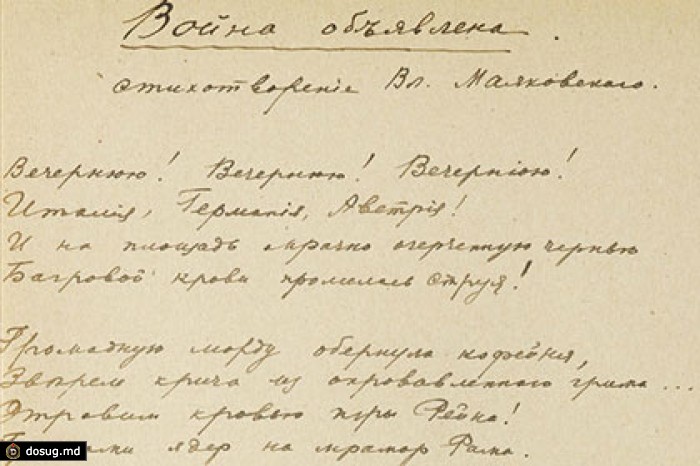 Война объявлена.
стихотворенiе Вл. Маяковского.
Вечернюю! Вечернюю! Вечернюю!
Италiя, Германiя, Австрiя!
И на площадь мрачно очерченную чернью
Багровой крови пролилась струя!
Громадную морду обернула кофейня,
Звѣрем крича из окровавленного грима ...
Отравим кровью игры Рейна!
ядер на мрамор Рима.
dosug.md